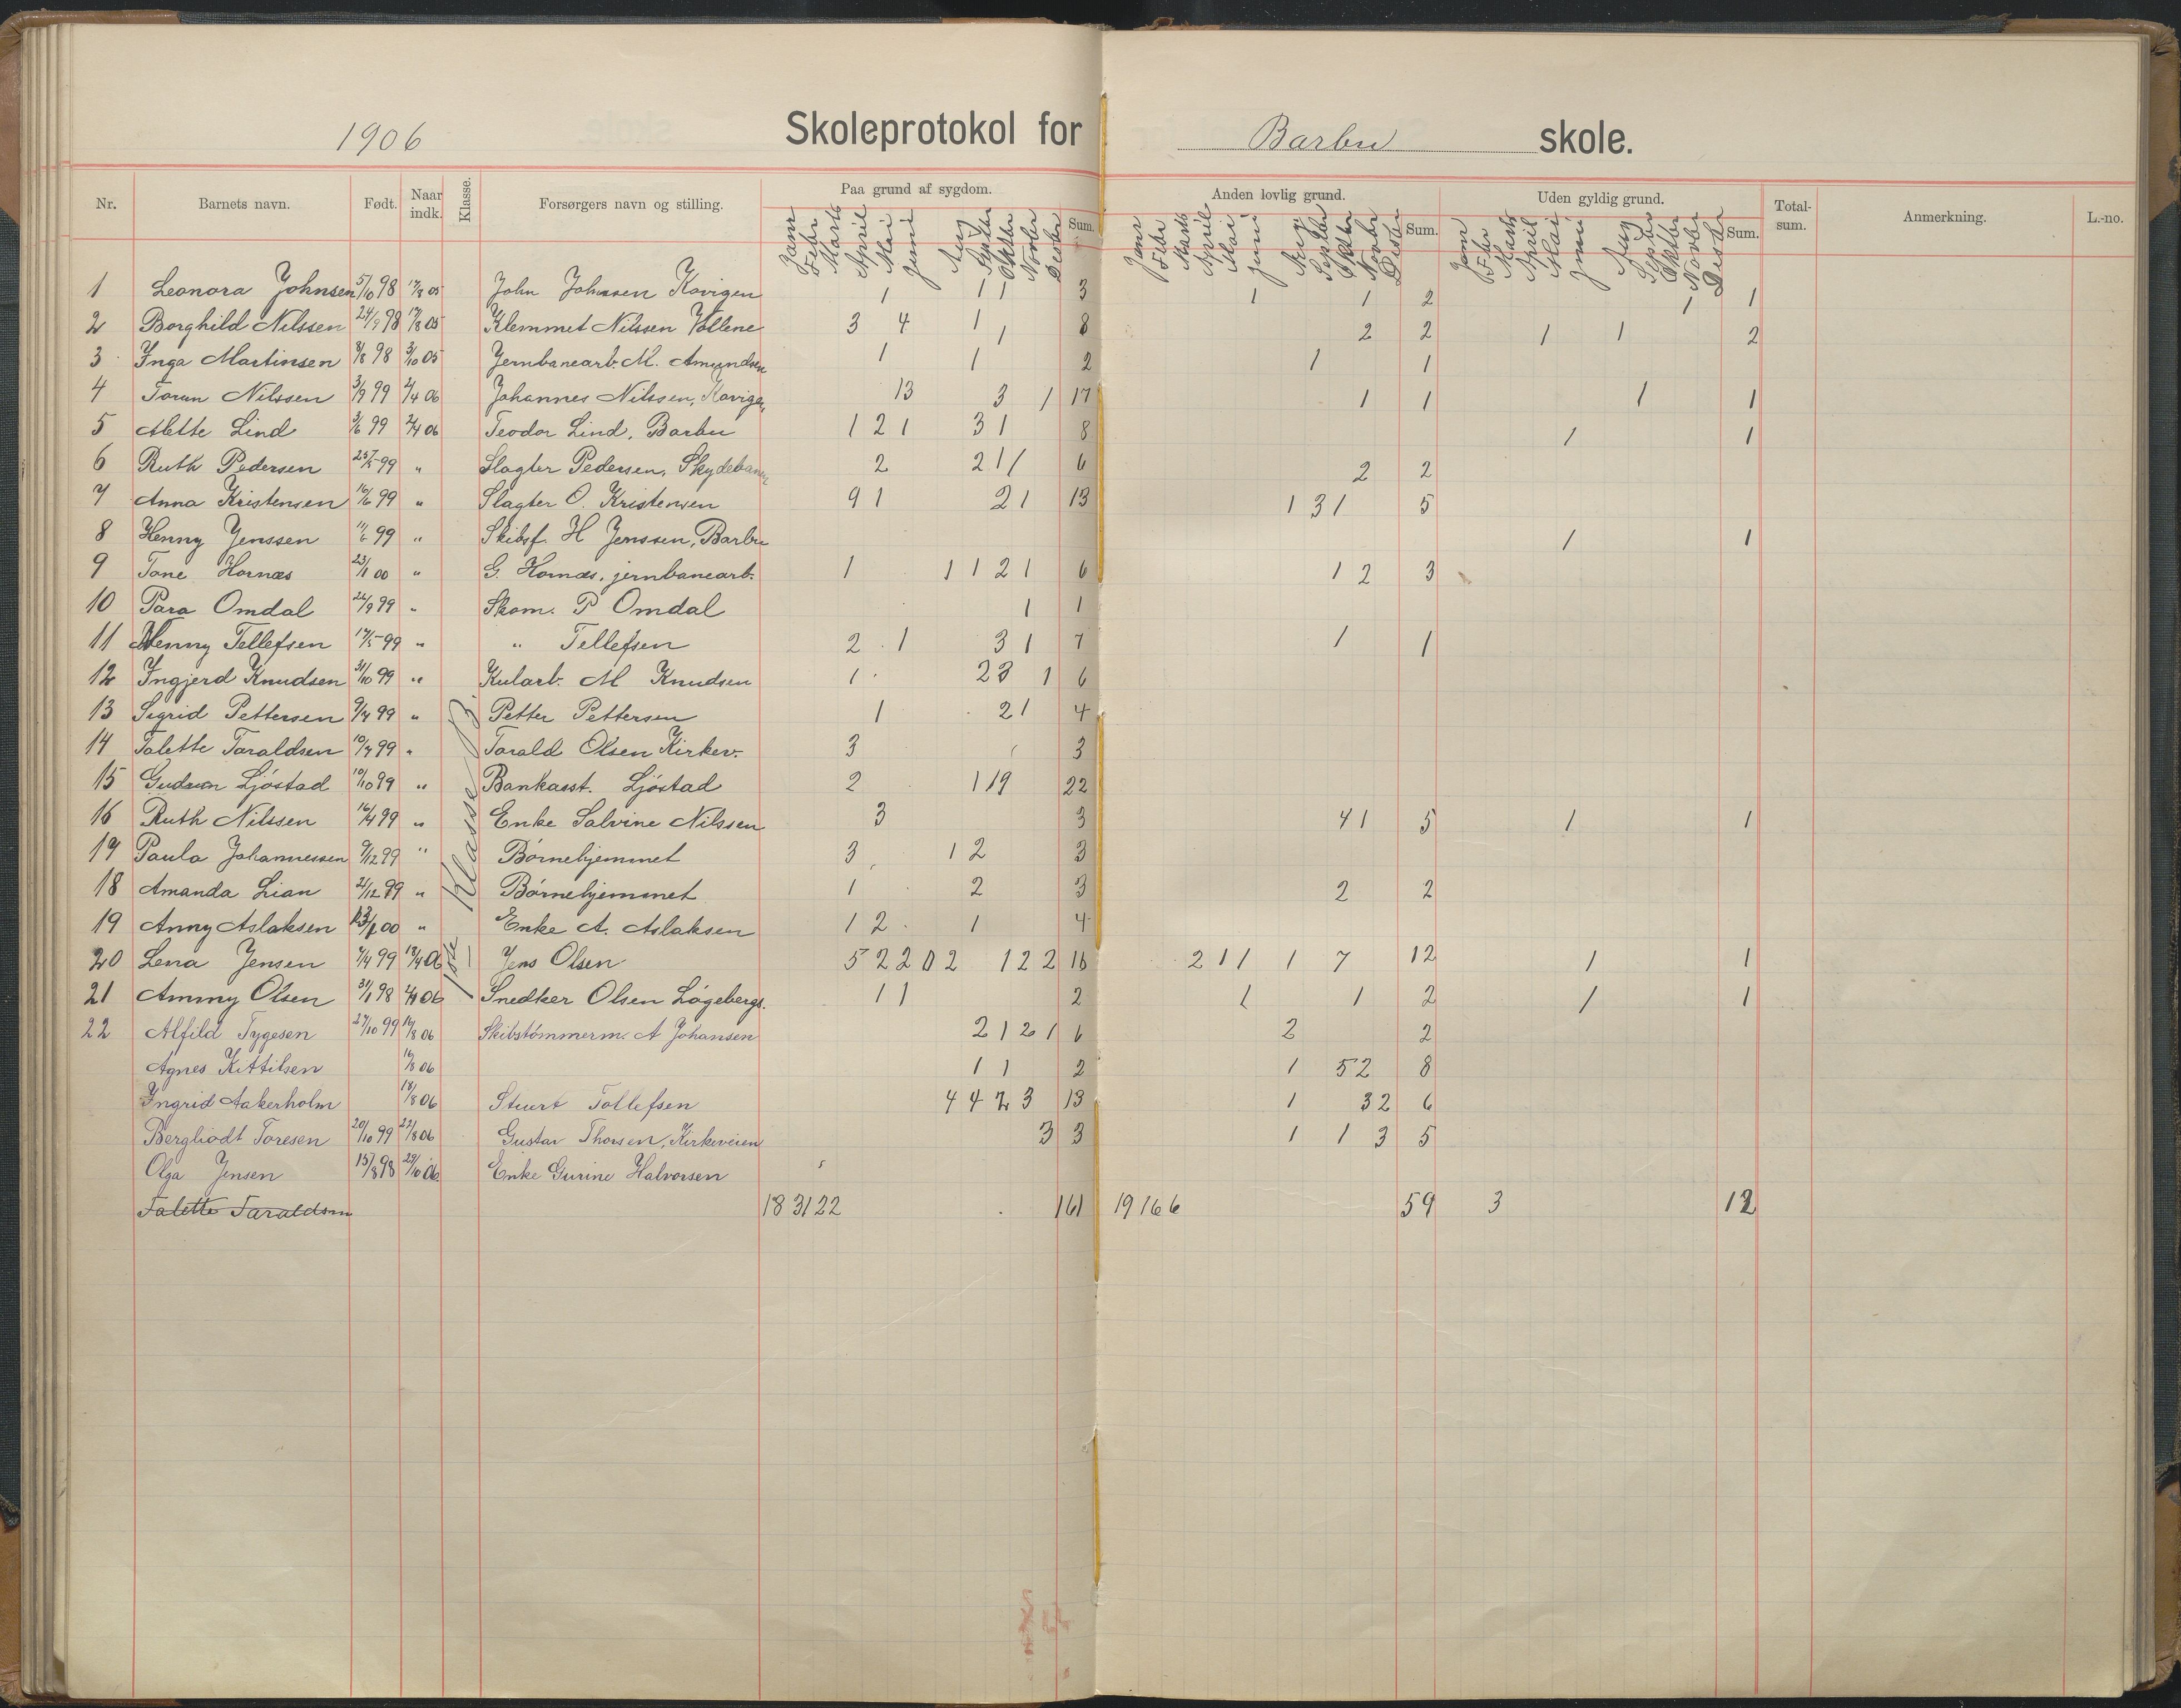 1906 Skoleprotokol for Barbu skole.
Nr. Barnets navn. Født. Naar indk. Klasse. Forsørgers navn og stilling. Paa grund af sygdom. Anden lovlig grund. Uden gyldig grund. Total-sum. Anmerkning. L.-no.
Janr Febr Marts April Mai Juni Aug Septbr Oktbr Novbr Desbr Sum. Janr Febr Marts April Mai Juni Aug Septbr Oktbr Novbr Desbr Sum. Janr Febr Marts April Mai Juni Aug Septbr Oktbr Novbr Desbr Sum.
1 Leonora Johnsen 5/10 98 17/8 05 John Johnsen Kovigen 1 1 1 3 1 1 2 1 1
2 Borghild Nilssen 24/9 98 17/8 05 Klemmet Nilssen Vollene 3 4 1 1 8 2 2 1 1 2
3 Inga Martinsen 3/8 98 3/10 05 Jernbanearb. M. Amundsen 1 1 2 1 1
4 Torun Nilssen 3/9 99 2/4 06 Johannes Nilssen, Kovigen 13 3 1 17 1 1 1 1
5 Alette Lind 3/6 99 2/4 06 Teodor Lind, Barbu 1 2 1 3 1 8 1 1
6 Ruth Pedersen 25/5 99 " Slagter Pedersen, Skydebanen 2 2 1 1 6 2 2
7 Anna Kristensen 16/6 99 " Slagter O. Kristensen 9 1 2 1 13 1 3 1 5
8 Henny Jenssen 11/6 99 " Skibsf. H Jenssen, Barbu 1 1
9 Tone Hornæs 23/1 00 " G. Hornæs, jernbanearb. 1 1 1 2 1 6 1 2 3
10 Para Omdal 26/9 99 " Skom. P Omdal 1 1
11 Henny Tellefsen 17/5 99 " " Tellefsen 2 1 3 1 7 1 1
12 Ingjerd Knudsen 31/10 99 " Kularb. M Knudsen 1 2 3 1 6
13 Sigrid Pettersen 9/4 99 " Petter Pettersen 1 2 1 4
14 Talette Taraldsen 10/7 99 " Tarald Olsen Kirkev. 3 3
15 Gudrun Ljöstad 10/10 99 " Bankasst. Ljöstad 2 1 19 22
16 Ruth Nilssen 16/4 99 " Enke Salvine Nilssen 3 3 4 1 5 1 1
17 Paula Johannessen 9/12 99 " Börnehjemmet 3 1 2 3
18 Amanda Lian 21/12 99 " Börnehjemmet 1 2 3 2 2
19 Anny Aslaksen 23/1 00 " Enke A. Aslaksen 1 2 1 4
1ste Klasse B.
20 Lena Jensen 7/4 99 19/4 06 Jens Olsen 5 2 2 0 2 1 2 2 16 2 1 1 1 7 12 1 1
21 Ammy Olsen 31/1 98 2/4 06 Snedker Olsen Lögebergs. 1 1 2 1 1 2 1 1
22 Alfild Tygesen 27/10 99 16/8 06 Skibstömmerm. A Johansen 2 1 2 1 6 2 2
Agnes Kittilsen 16/8 06 1 1 2 1 5 2 8
Ingrid Aakerholm 18/8 06 Stuert Tollefsen 4 4 2 3 13 1 3 2 6
Bergliodt Toresen 20/10 99 22/8 06 Gustav Thorsen, Kirkeveien 3 3 1 1 3 5
Olga Jensen 15/8 98 29/10 06 Enke Gurine Halvorsen
Talette Taraldsen 18 31 22 161 19 16 6 59 3 12